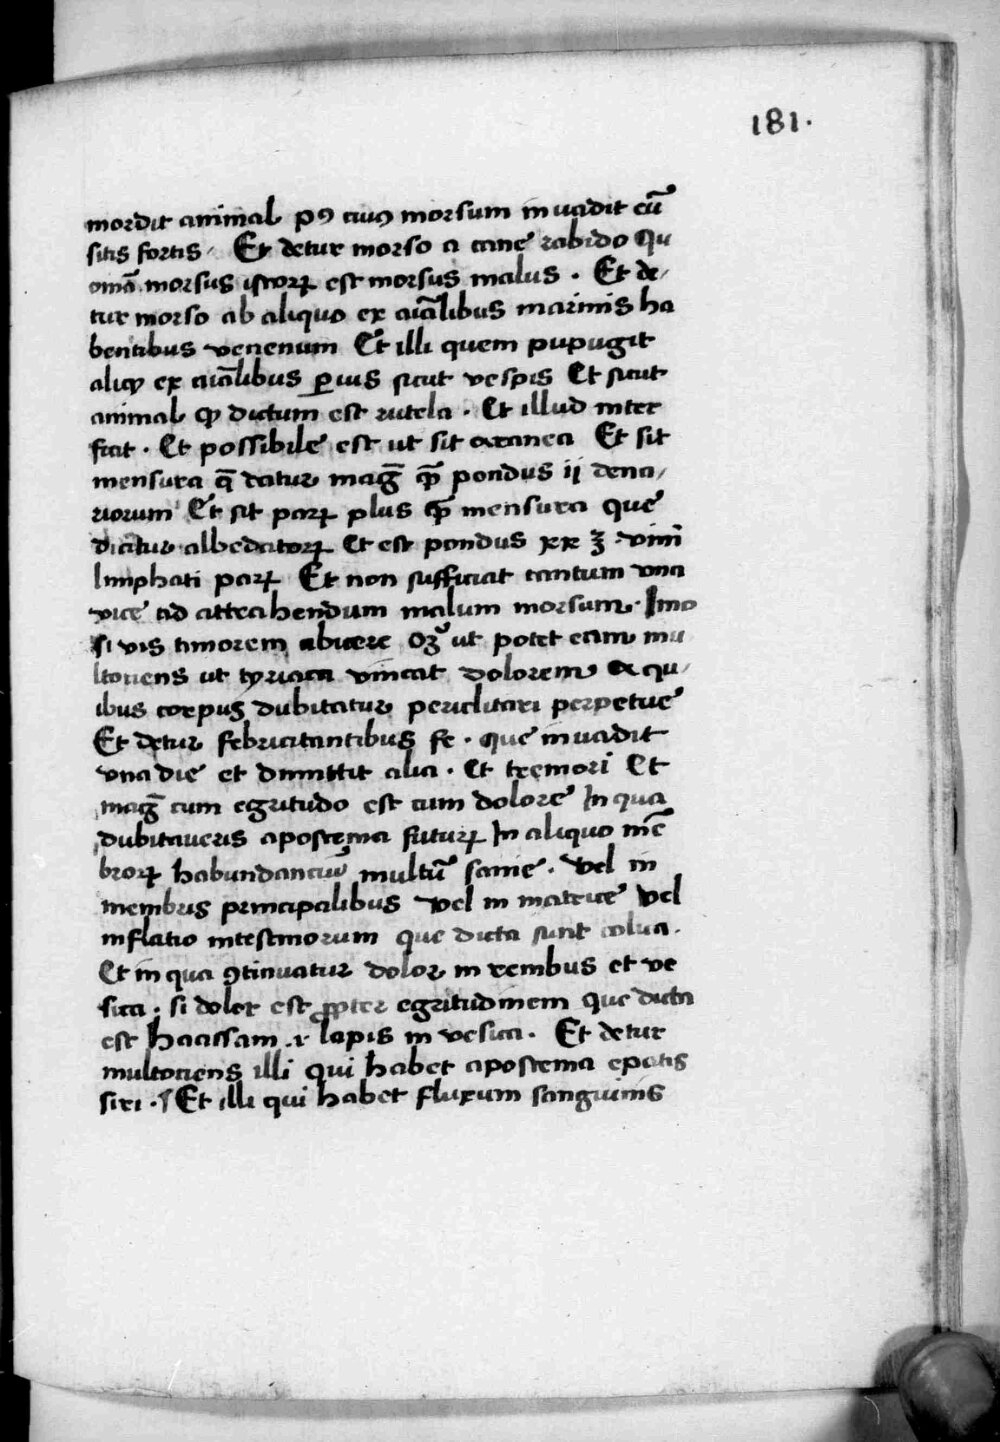 181.
mordit animal pꝯ cuiꝯ morsum inuadit eū
sitis fortis / Et detur morso a cane rabido Qu
oniā morsus istorꝝ est morsus malus . Et de/
tur morso ab aliquo ex aīalibus marinis ha
bentibus venenum Et illi quem pupugit
aliqꝫ ex aīalibus ꝑuis sicut vespis Et sicut
animal qꝫ dictum est rutela . Et illud inter
ficit . Et possibile est ut sit aranea Et sit
mensura q̄ datur mag̅ qꝫ̄ pondus ij dena/
riorum Et sit parꝝ plus qꝫ̄ mensura que
dicitur albedatorꝝ Et est pondus xx ʒ . vini
limphati parꝝ Et non sufficiat tantum vna
vice ad attrahendum malum morsum . Imo
si vis timorem abicere oꝫ ut potet eam mu
ltociens ut tyriaca vincat dolorem Ex qu/
ibus corpus dubitatur periclitari perpetue
Et detur febricitantibus fe . que inuadit
vna die et dimittit alia . Et tremori Et
mag̅ cum egritudo est cum dolore In qua
dubitaueris apostema futurꝝ In aliquo mē
brorꝝ habundanciū multū sanie . Vel in
membris principalibus Vel in matrice Vel
inflatio intestinorum que dicta sunt colua .
Et in qua ꝯtinuatur dolor in renibus et ve
sica . si dolor est ꝓpter egritudinem que dicta
est haassam .i. lapis in vesica . Et detur
multociens illi qui habet apostema epatis
siri . ¶ Et illi qui habet fluxum sanguinis